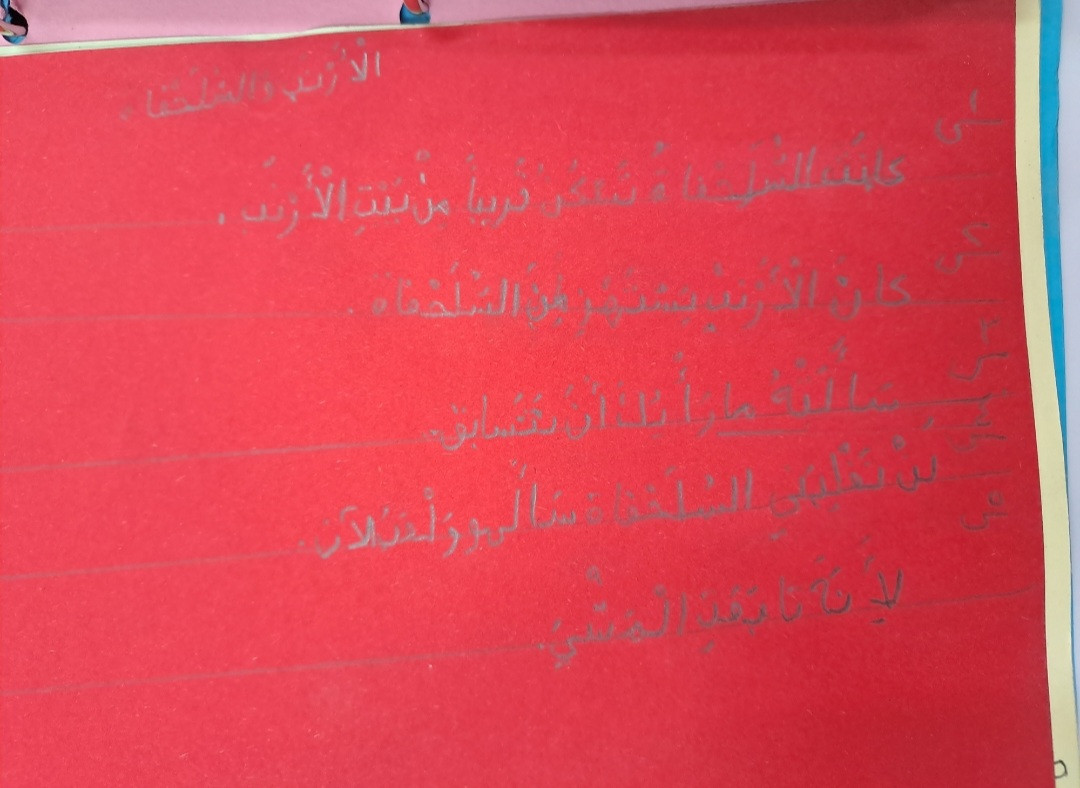 الْأَرْنَب والسُّلَحْفاة
س١
كانَت السُّلَحْفاةُ تَسْكُنُ قَريباً مِنْ بَيْتِ الْأَرْنَبِ.
س٢
كانَ الْأَرْنَبُ يَسْتَهْزِئُ مِنَ السُّلَحْفاةِ.
س٣
سَأَلَتْهُ ما رَأْيُكَ أَنْ نَتَسابَق.
س٤
لَنْ تَغْلِبَني السُّلَحْفاة سَأَلْهو وَلْعَبُ الآنَ.
س٥
لِأَنَّهُ نا بَعْدَ الْمَشْيِ.